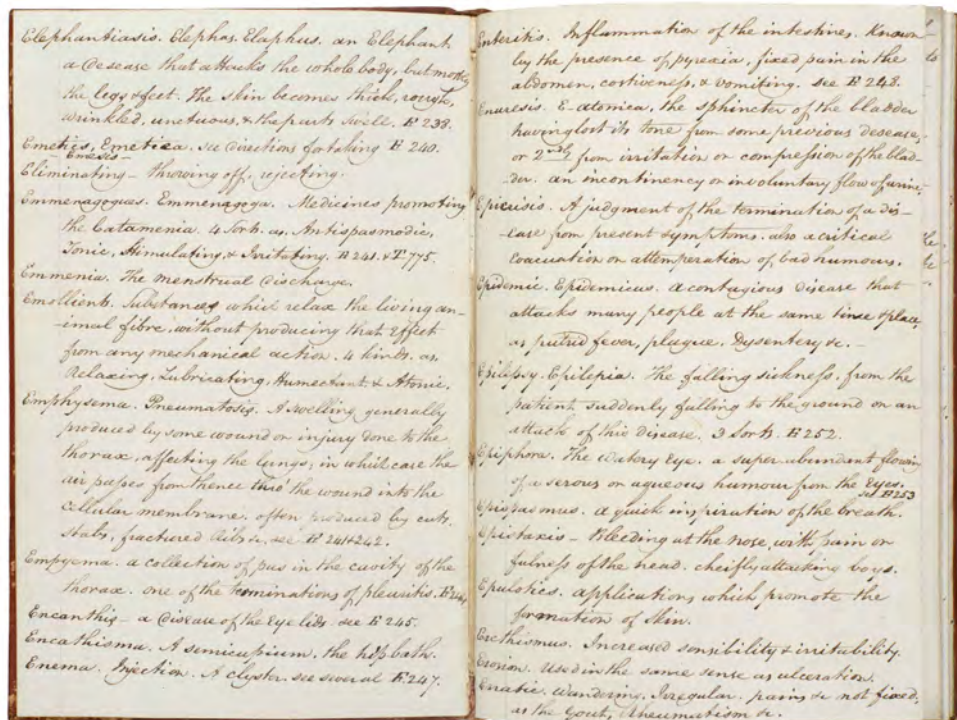 Elephantiasis. Elephas. Elaphus. an Elephant
a Desease that attacks the whole body, but mostly
the legs & feet. The skin becomes thick, rough,
wrinkled, unctuous, & the parts swell. E 238.
Emetics, Emetica. see directions for taking E 240.
- Emesis -
Eliminating - throwing off, rejecting.
Emmenagogues. Emmenagoga. Medicines promoting
the Catamenia. 4 Sorts. as. Antispasmodic,
Tonic, Stimulating, & Irritating. E 241. & T 775.
Emmenia. The menstrual discharge.
Emollients. Substances which relax the living an-
-imal fibre, without producing that Effect
from any mechanical action. 4 kinds. as,
Relaxing, Lubricating, Humectant & Atonic.
Emphysema. Pneumatosis. A swelling generally
produced by some wound or injury done to the
thorax, affecting the lungs; in which case the
air passes from thence thro' the wound into the
cellular membrane. often produced by cuts,
stabs, fractured Ribs &c, see E 241 & 242.
Empyema. a collection of pus in the cavity of the
thorax. one of the terminations of pleuritis. E 244
Encanthis - a Disease of the Eye lids. see E 245.
Encathisma. A semicupium. the hip bath.
Enema. Injection. A clyster. see several E. 247.
Enteritis. Inflammation of the intestines. Known
by the presence of pyrexia, fixed pain in the
abdomen, costiveness, & vomiting. see E 248.
Enuresis. E-atonica, the sphincter of the bladder
having lost its tone from some previous desease,
or 2ndly from irritation or compression of the blad-
-der. an incontinency or involuntary flow of urine,
Epicrisis. A judgment of the termination of a dis-
-ease from present symptoms. also a critical
Evacuation or attemperation of bad humours.
Epidemic. Epidemicus. a contagious disease that
attacks many people at the same time & place,
as putrid fever, plague, Dysentery &c. -
Epilepsy. Epilepia. The falling sickness, from the
patient suddenly falling to the ground on an
attack of this disease. 3 Sorts. E 252.
Epiphora. The Watery Eye. a super-abundant flowing
of a serous or aqueous humour from the Eyes.
see E 253
Epispasmus. a quick inspiration of the breath.
Epistaxis - Bleeding at the nose, with pain or
fulness of the head. cheifly attacking boys.
Epulotics. applications which promote the
formation of skin.
Erethismus. Increased sensibility & irritability.
Erosion. Used in the same sense as ulceration.
Erratic. Wandering. Irregular. pains &c not fixed,
as the Gout, Rheumatism &c.